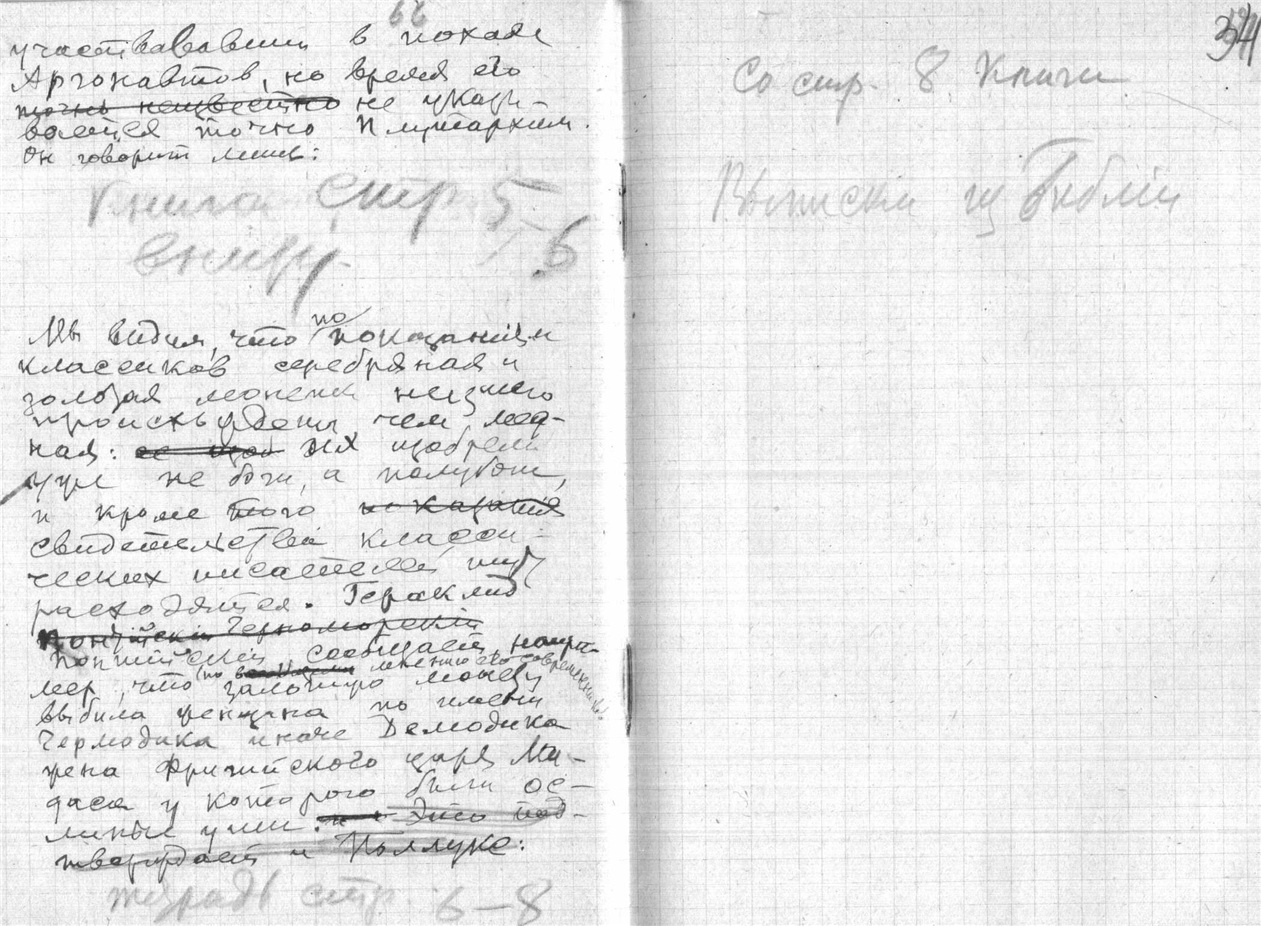 66
участвовавшим в походе
Аргонавтов, но время его
точно неизвестно не указы-
вается точно Плутархом.
Он говорит лишь:
Книга стр. 5-6
внизу.
Мы видим, что по показаниям
классиков серебряная и
золотая монеты низшего
происхождения, чем мед-
ная: их изобрели
уже не боги, а полубоги,
и кроме того показания
свидетельства класси-
ческих писателей тут
расходятся. Гераклид
Понтийский Черноморский
Понтийский сообщает, напри-
мер, что (по мнению его современников)
золотую монету
выбила женщина по имени
Гермодика иначе Демодика
жена Фригийского царя Ми-
даса у которого были ос-
линые уши. Это под-
тверждает и Поллукс:
тетрадь стр. 6-8
34
Со стр. 8 Книги
Выписки из Библии